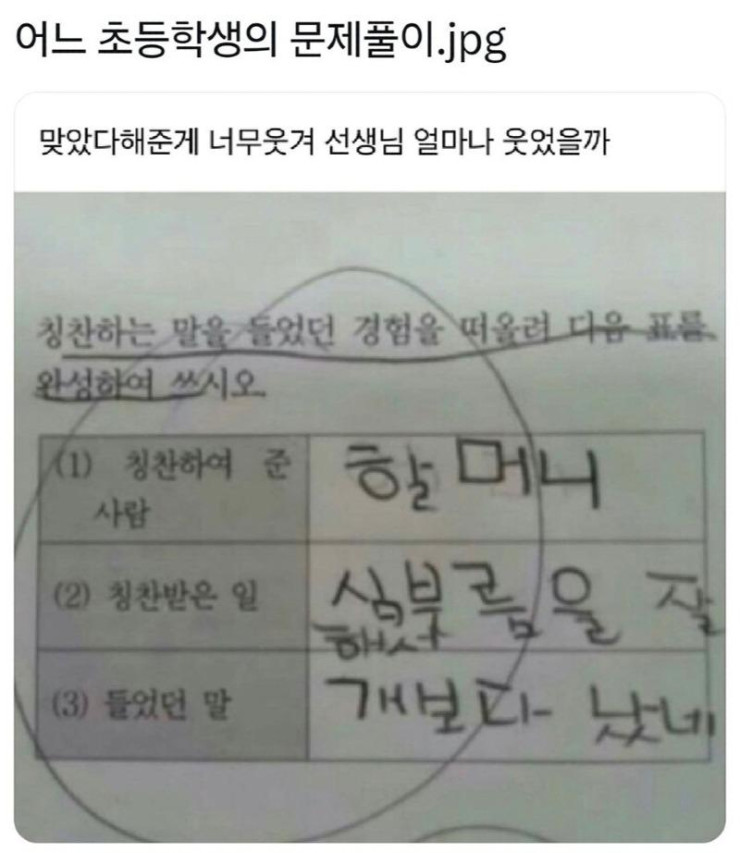 어느 초등학생의 문제풀이.jpg
맞았다해준게 너무웃겨 선생님 얼마나 웃었을까
칭찬하는 말을 들었던 경험을 떠올려 다음 표를
완성하여 쓰시오.
(1) 칭찬하여 준
사람
할머니
(2) 칭찬받은 일
심부름을 잘
해서
(3) 들었던 말
개보다 낫네